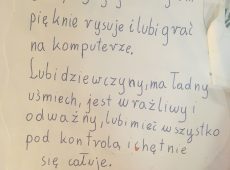 pięknie rysuje i lubi grać
na komputerze.
Lubi dziewczyny, ma ładny
uśmiech, jest wrażliwy i
odważny, lubi mieć wszystko
pod kontrolą i chętnie
się całuje.